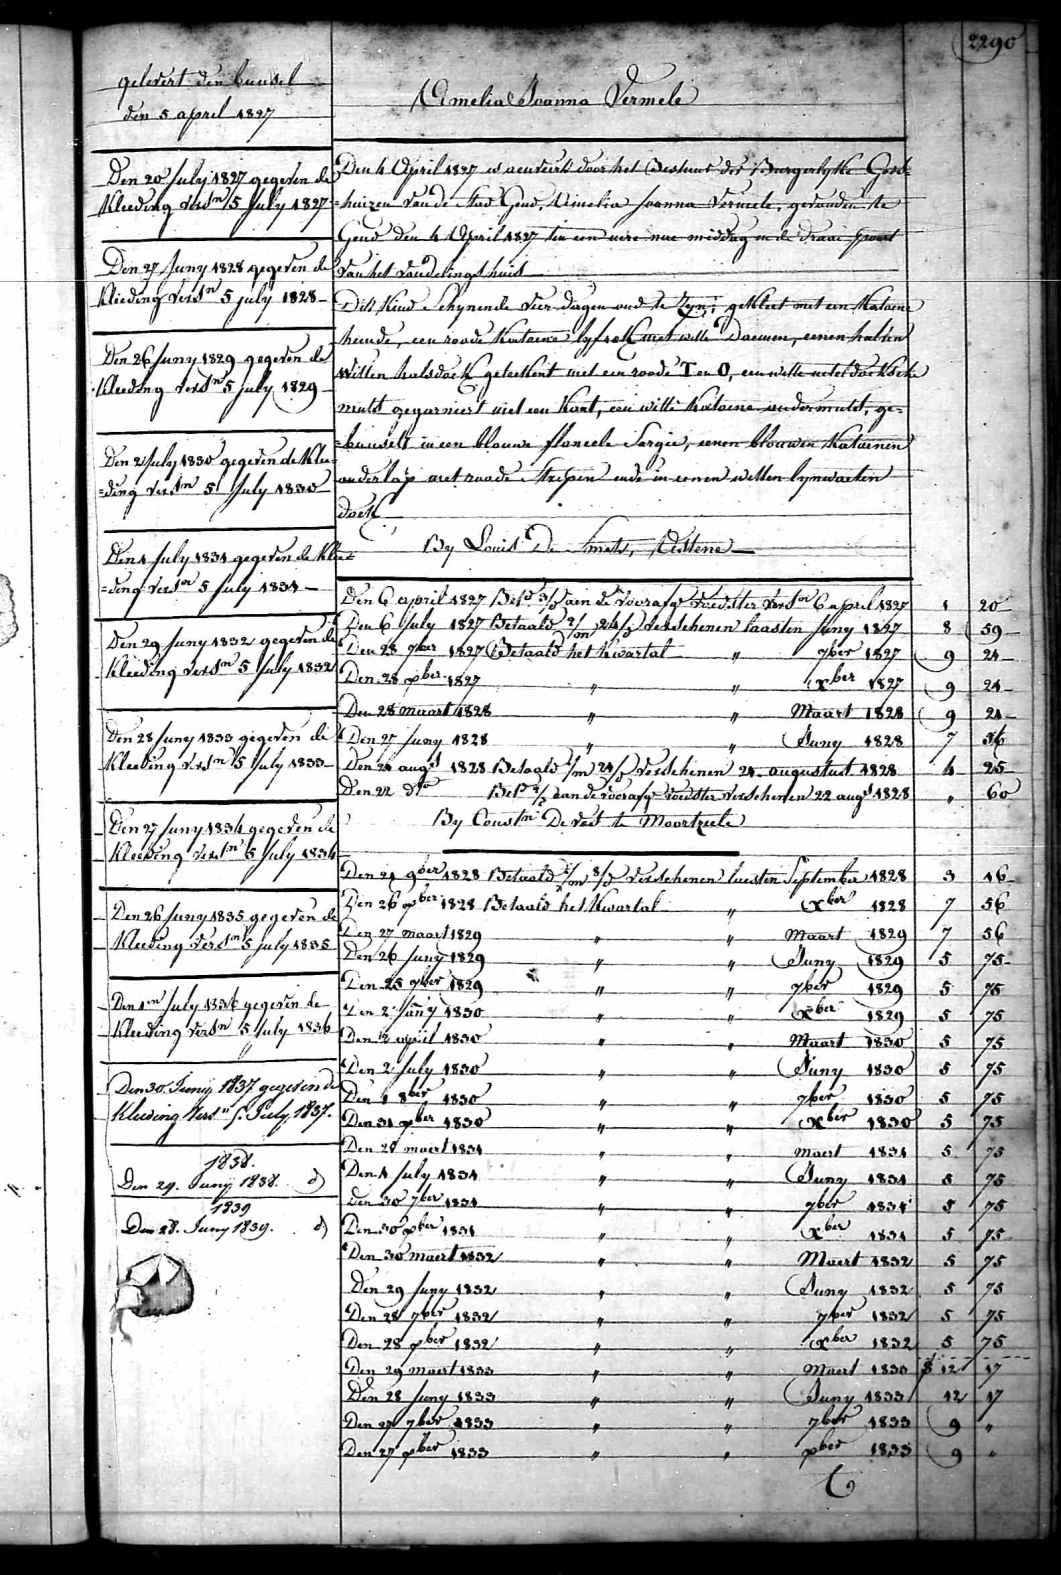 2290
gelevert den bunsel
den 5 april 1827
Amelia Joanna Vermele
Den 20 July 1827 gegeven de
Kleeding versn 5 July 1827
Den 27 Juny 1828 gegeven de
Kleeding versn 5 july 1828
Den 26 Juny 1829 gegeven de
Kleeding versn 5 july 1829
Den 2 July 1830 gegeven de Klee=
=ding versn 5 July 1830
Den 1 July 1831 gegeven de Klee=
=ding versn 5 July 1831
Den 29 Juny 1832 gegeven de
Kleeding versn 5 July 1832
Den 28 Juny 1833 gegeven de
Kleeding versn 5 July 1833
Den 27 Juny 1834 gegeven de
Kleeding versn 5 July 1834
Den 26 Juny 1835 gegeven de
Kleeding versn 5 july 1835
Den 1en July 1836 gegeven de
Kleeding versn 5 July 1836
Den 30 Junij 1837 gegeven de
Kleeding versn 5 July 1837.
1838.
Den 29. Junij 1838. d)
1839
Den 28. Juny 1839. d)
Den 4 April 1827 is aenveird door het Bestuur der Burgerlyke Gods=
=huizen van de Stad Gend, Amelia Joanna Vermele, gevonden te
Gend den 4 April 1827 ten een uere nae middag in de draai
van het vondelingshuis
Dit Kind schynende vier dagen oud te zyn; gekleet met een Katoene
hemde, een roode Katoene lyfrok met witte mouwen, eenen
witten halsdoek geteekent met een roode T en O, een witte neteldoeksche
muts gegarneert met een Kant, een witte Katoene ondermuts, ge=
=bunselt in een blauwe flaneele Sargie, eenen blouwen Katoenen
met roode Strepen ende in eenen witten lynwaeten
doek
By Louis De Smet, Astene
Den 6 april 1827 Betd aen de voorafge voedster versn 6 april 1827 1 20
Den 6 July 1827 Betaald verschenen laasten Juny 1827 8 59
Den 28 7ber 1827 Betaald het Kwartal " 7ber 1827 9 24
Den 28 xber 1827 " " xber 1827 9 24
Den 28 maart 1828 " " Maart 1828 9 24
Den 27 Juny 1828 " " Juny 1828 7 56
Den 24 augst 1828 Betaald verschenen 24 augustus 1828 4 25
Den 22 dto Betd aan de voorafge voedster verschenen 22 augst 1828 " 60
By Constn De Vest te Moortzeele
Den 21 9ber 1828 Betaald verschenen laasten September 1828 3 16
Den 26 xber 1828 Betaald het Kwartal " xber 1828 7 56
Den 27 maart 1829 " " Maart 1829 7 56
Den 26 Juny 1829 " " Juny 1829 5 75
Den 25 7ber 1829 " " 7ber 1829 5 75
Den 2 Jany 1830 " " xber 1829 5 75
Den 2 april 1830 " " Maart 1830 5 75
Den 2 July 1830 " " Juny 1830 5 75
Den 1 8ber 1830 " " 7ber 1830 5 75
Den 31 xber 1830 " " xber 1830 5 75
Den 28 maert 1831 " " Maert 1831 5 75
Den 1 July 1831 " " Juny 1831 5 75
Den 30 7ber 1831 " " 7ber 1831 5 75
Den 30 xber 1831 " " xber 1831 5 75
Den 30 maert 1832 " " Maert 1832 5 75
Den 29 Juny 1832 " " Juny 1832 5 75
Den 28 7ber 1832 " " 7ber 1832 5 75
Den 28 xber 1832 " " xber 1832 5 75
Den 29 maert 1833 " " Maert 1833 12 17
Den 28 Juny 1833 " " Juny 1833 12 17
Den 27 7ber 1833 " " 7ber 1833 9 "
Den 27 xber 1833 " " xber 1833 9 "